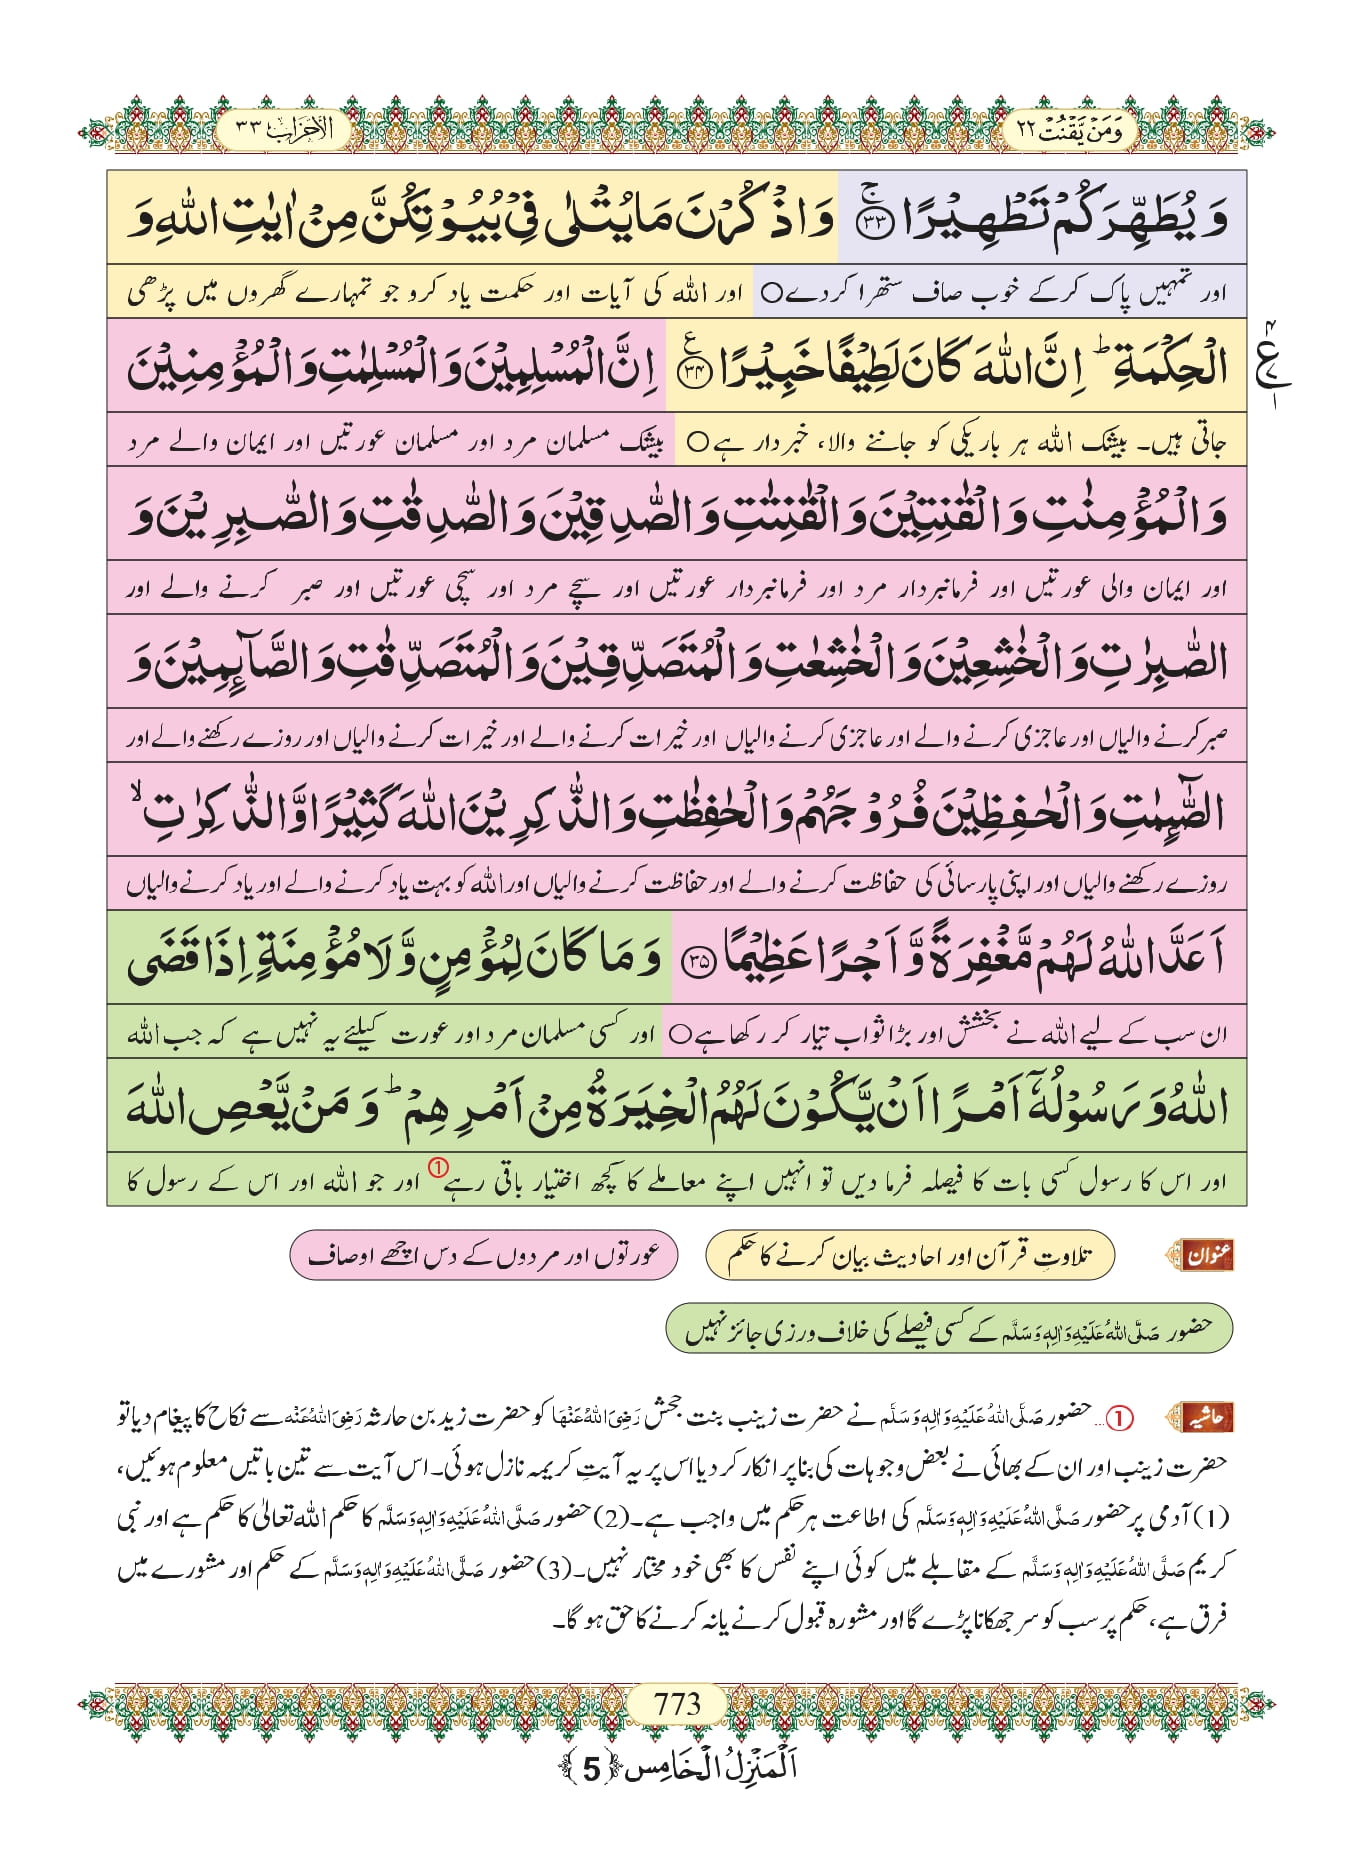 وَمَنْ يَّقْنُتْ ٢٢
الاحزاب ٣٣
وَيُطَهِّرَكُمْ تَطْهِيْرًا ﴿٣٣﴾ ج وَاذْكُرْنَ مَا يُتْلٰى فِيْ بُيُوْتِكُنَّ مِنْ اٰيٰتِ اللّٰهِ وَ
اور تمہیں پاک کرکے خوب صاف ستھرا کردے○ اور اللہ کی آیات اور حکمت یاد کرو جو تمہارے گھروں میں پڑھی
الْحِكْمَةِ ؕ اِنَّ اللّٰهَ كَانَ لَطِيْفًا خَبِيْرًا ﴿٣٤﴾ ع اِنَّ الْمُسْلِمِيْنَ وَالْمُسْلِمٰتِ وَالْمُؤْمِنِيْنَ
جاتی ہیں۔ بیشک اللہ ہر باریکی کو جاننے والا، خبردار ہے○ بیشک مسلمان مرد اور مسلمان عورتیں اور ایمان والے مرد
وَالْمُؤْمِنٰتِ وَالْقٰنِتِيْنَ وَالْقٰنِتٰتِ وَالصّٰدِقِيْنَ وَالصّٰدِقٰتِ وَالصّٰبِرِيْنَ وَ
اور ایمان والی عورتیں اور فرمانبردار مرد اور فرمانبردار عورتیں اور سچے مرد اور سچی عورتیں اور صبر کرنے والے اور
الصّٰبِرٰتِ وَالْخٰشِعِيْنَ وَالْخٰشِعٰتِ وَالْمُتَصَدِّقِيْنَ وَالْمُتَصَدِّقٰتِ وَالصَّآىِٕمِيْنَ وَ
صبر کرنے والیاں اور عاجزی کرنے والے اور عاجزی کرنے والیاں اور خیرات کرنے والے اور خیرات کرنے والیاں اور روزے رکھنے والے اور
الصّٰٓىِٕمٰتِ وَالْحٰفِظِيْنَ فُرُوْجَهُمْ وَالْحٰفِظٰتِ وَالذّٰكِرِيْنَ اللّٰهَ كَثِيْرًا وَّالذّٰكِرٰتِ ۙ
روزے رکھنے والیاں اور اپنی پارسائی کی حفاظت کرنے والے اور حفاظت کرنے والیاں اور اللہ کو بہت یاد کرنے والے اور یاد کرنے والیاں
اَعَدَّ اللّٰهُ لَهُمْ مَّغْفِرَةً وَّاَجْرًا عَظِيْمًا ﴿٣٥﴾ وَمَا كَانَ لِمُؤْمِنٍ وَّلَا مُؤْمِنَةٍ اِذَا قَضَى
ان سب کے لیے اللہ نے بخشش اور بڑا ثواب تیار کر رکھا ہے○ اور کسی مسلمان مرد اور عورت کیلئے یہ نہیں ہے کہ جب اللہ
اللّٰهُ وَرَسُوْلُهٗٓ اَمْرًا اَنْ يَّكُوْنَ لَهُمُ الْخِيَرَةُ مِنْ اَمْرِهِمْ ؕ وَمَنْ يَّعْصِ اللّٰهَ
اور اس کا رسول کسی بات کا فیصلہ فرما دیں تو انہیں اپنے معاملے کا کچھ اختیار باقی رہے① اور جو اللہ اور اس کے رسول کا
عنوان تلاوتِ قرآن اور احادیث بیان کرنے کا حکم عورتوں اور مردوں کے دس اچھے اوصاف
حضور صَلَّى اللّٰهُ عَلَيْهِ وَاٰلِهٖ وَسَلَّم کے کسی فیصلے کی خلاف ورزی جائز نہیں
حاشیہ ①... حضور صَلَّى اللّٰهُ عَلَيْهِ وَاٰلِهٖ وَسَلَّم نے حضرت زینب بنت جحش رَضِیَ اللّٰهُ عَنْهَا کو حضرت زید بن حارثہ رَضِیَ اللّٰهُ عَنْه سے نکاح کا پیغام دیا تو
حضرت زینب اور ان کے بھائی نے بعض وجوہات کی بنا پر انکار کر دیا اس پر یہ آیتِ کریمہ نازل ہوئی۔ اس آیت سے تین باتیں معلوم ہوئیں،
(1) آدمی پر حضور صَلَّى اللّٰهُ عَلَيْهِ وَاٰلِهٖ وَسَلَّم کی اطاعت ہر حکم میں واجب ہے۔ (2) حضور صَلَّى اللّٰهُ عَلَيْهِ وَاٰلِهٖ وَسَلَّم کا حکم اللہ تعالیٰ کا حکم ہے اور نبی
کریم صَلَّى اللّٰهُ عَلَيْهِ وَاٰلِهٖ وَسَلَّم کے مقابلے میں کوئی اپنے نفس کا بھی خود مختار نہیں۔ (3) حضور صَلَّى اللّٰهُ عَلَيْهِ وَاٰلِهٖ وَسَلَّم کے حکم اور مشورے میں
فرق ہے، حکم پر سب کو سر جھکانا پڑے گا اور مشورہ قبول کرنے یا نہ کرنے کا حق ہو گا۔
773
اَلْمَنْزِلُ الْخَامِس ﴿5﴾